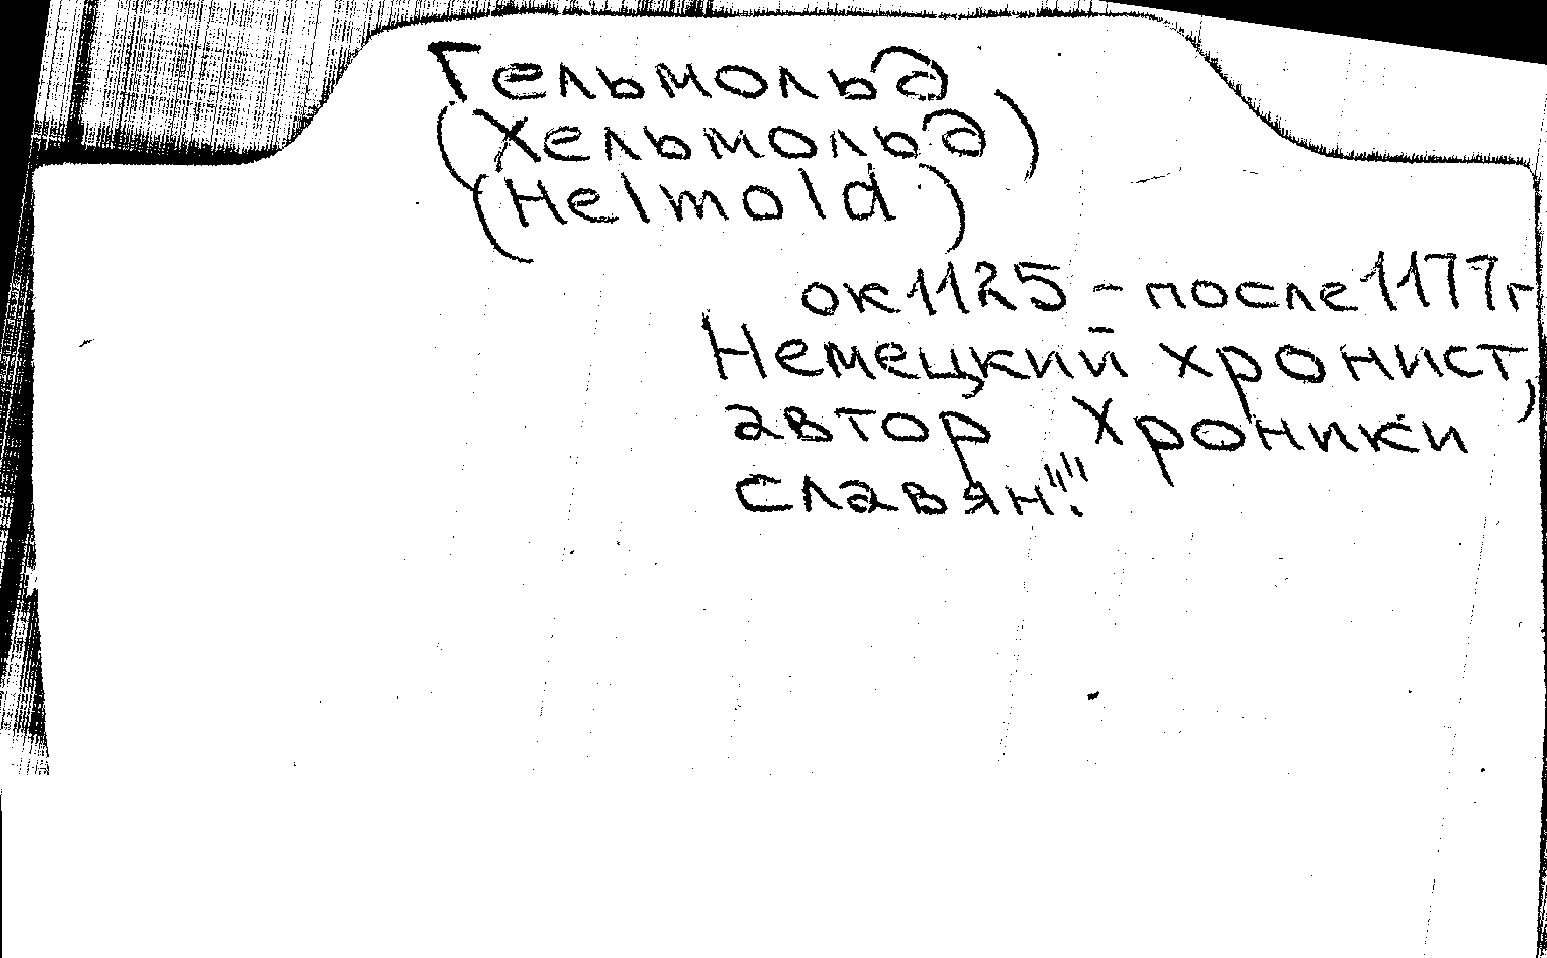 Гельмольд
(Хельмольд)
(Helmold)
ок 1125 – после 1177 г
Немецкий хронист,
автор "Хроники
славян".